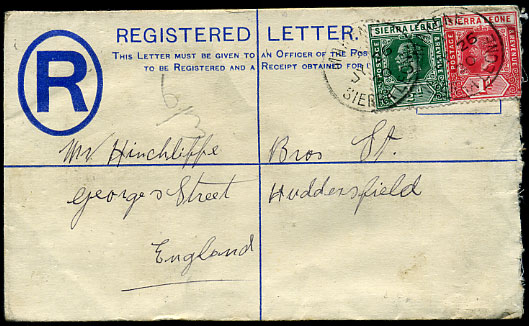 REGISTERED LETTER.
THIS LETTER MUST BE GIVEN TO AN OFFICER OF THE POS
TO BE REGISTERED AND A RECEIPT OBTAINED FOR
R
SIERRA LEONE
POSTAGE
SIERRA LEONE
POSTAGE
& REVENUE
SIER
26
Mr Hinchliffe Bros St.
Georges Street Huddersfield
England